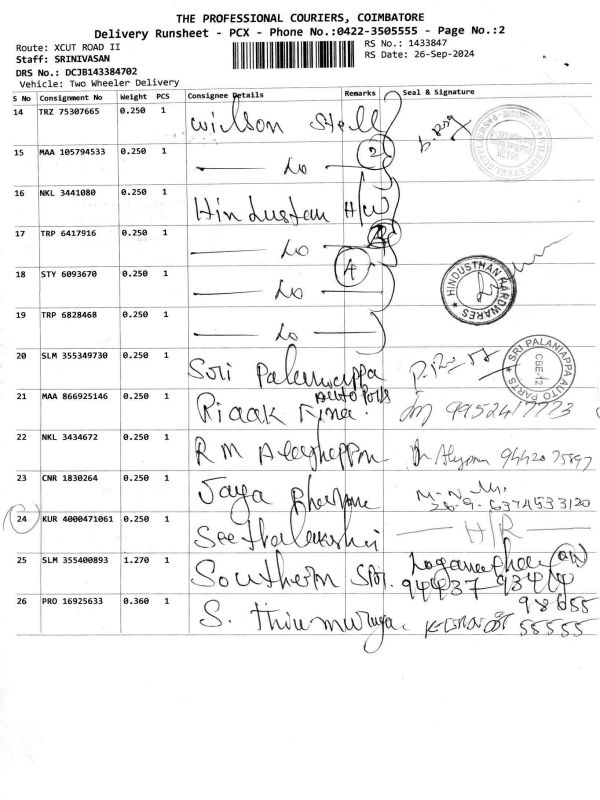 THE PROFESSIONAL COURIERS, COIMBATORE
Delivery Runsheet - PCX - Phone No.:0422-3505555 - Page No.:2
Route: XCUT ROAD II
RS No.: 1433847
Staff: SRINIVASAN
RS Date: 26-Sep-2024
DRS No.: DCJB143384702
Vehicle: Two Wheeler Delivery
S No Consignment No Weight PCS Consignee Details Remarks Seal & Signature
14 TRZ 75307665 0.250 1 Wilson Stell
15 MAA 105794533 0.250 1 — Do — 2
16 NKL 3441080 0.250 1 Hindustan H/W
17 TRP 6417916 0.250 1 — Do —
18 STY 6093670 0.250 1 — Do — 4
HINDUSTHAN HARDWARES
19 TRP 6828468 0.250 1 — Do —
20 SLM 355349730 0.250 1 Sri Palaniappa Auto Parts
SRI PALANIAPPA AUTO PARTS CBE-12
21 MAA 866925146 0.250 1
22 NKL 3434672 0.250 1 R M 94420 75897
23 CNR 1830264 0.250 1 Jaya 26-9-6374533120
24 KUR 4000471061 0.250 1 Seethalakshmi — H/R —
25 SLM 355400893 1.270 1 Southern Loganathan
94437-93414
26 PRO 16925633 0.360 1 S. Thirumuruga 98655
55555